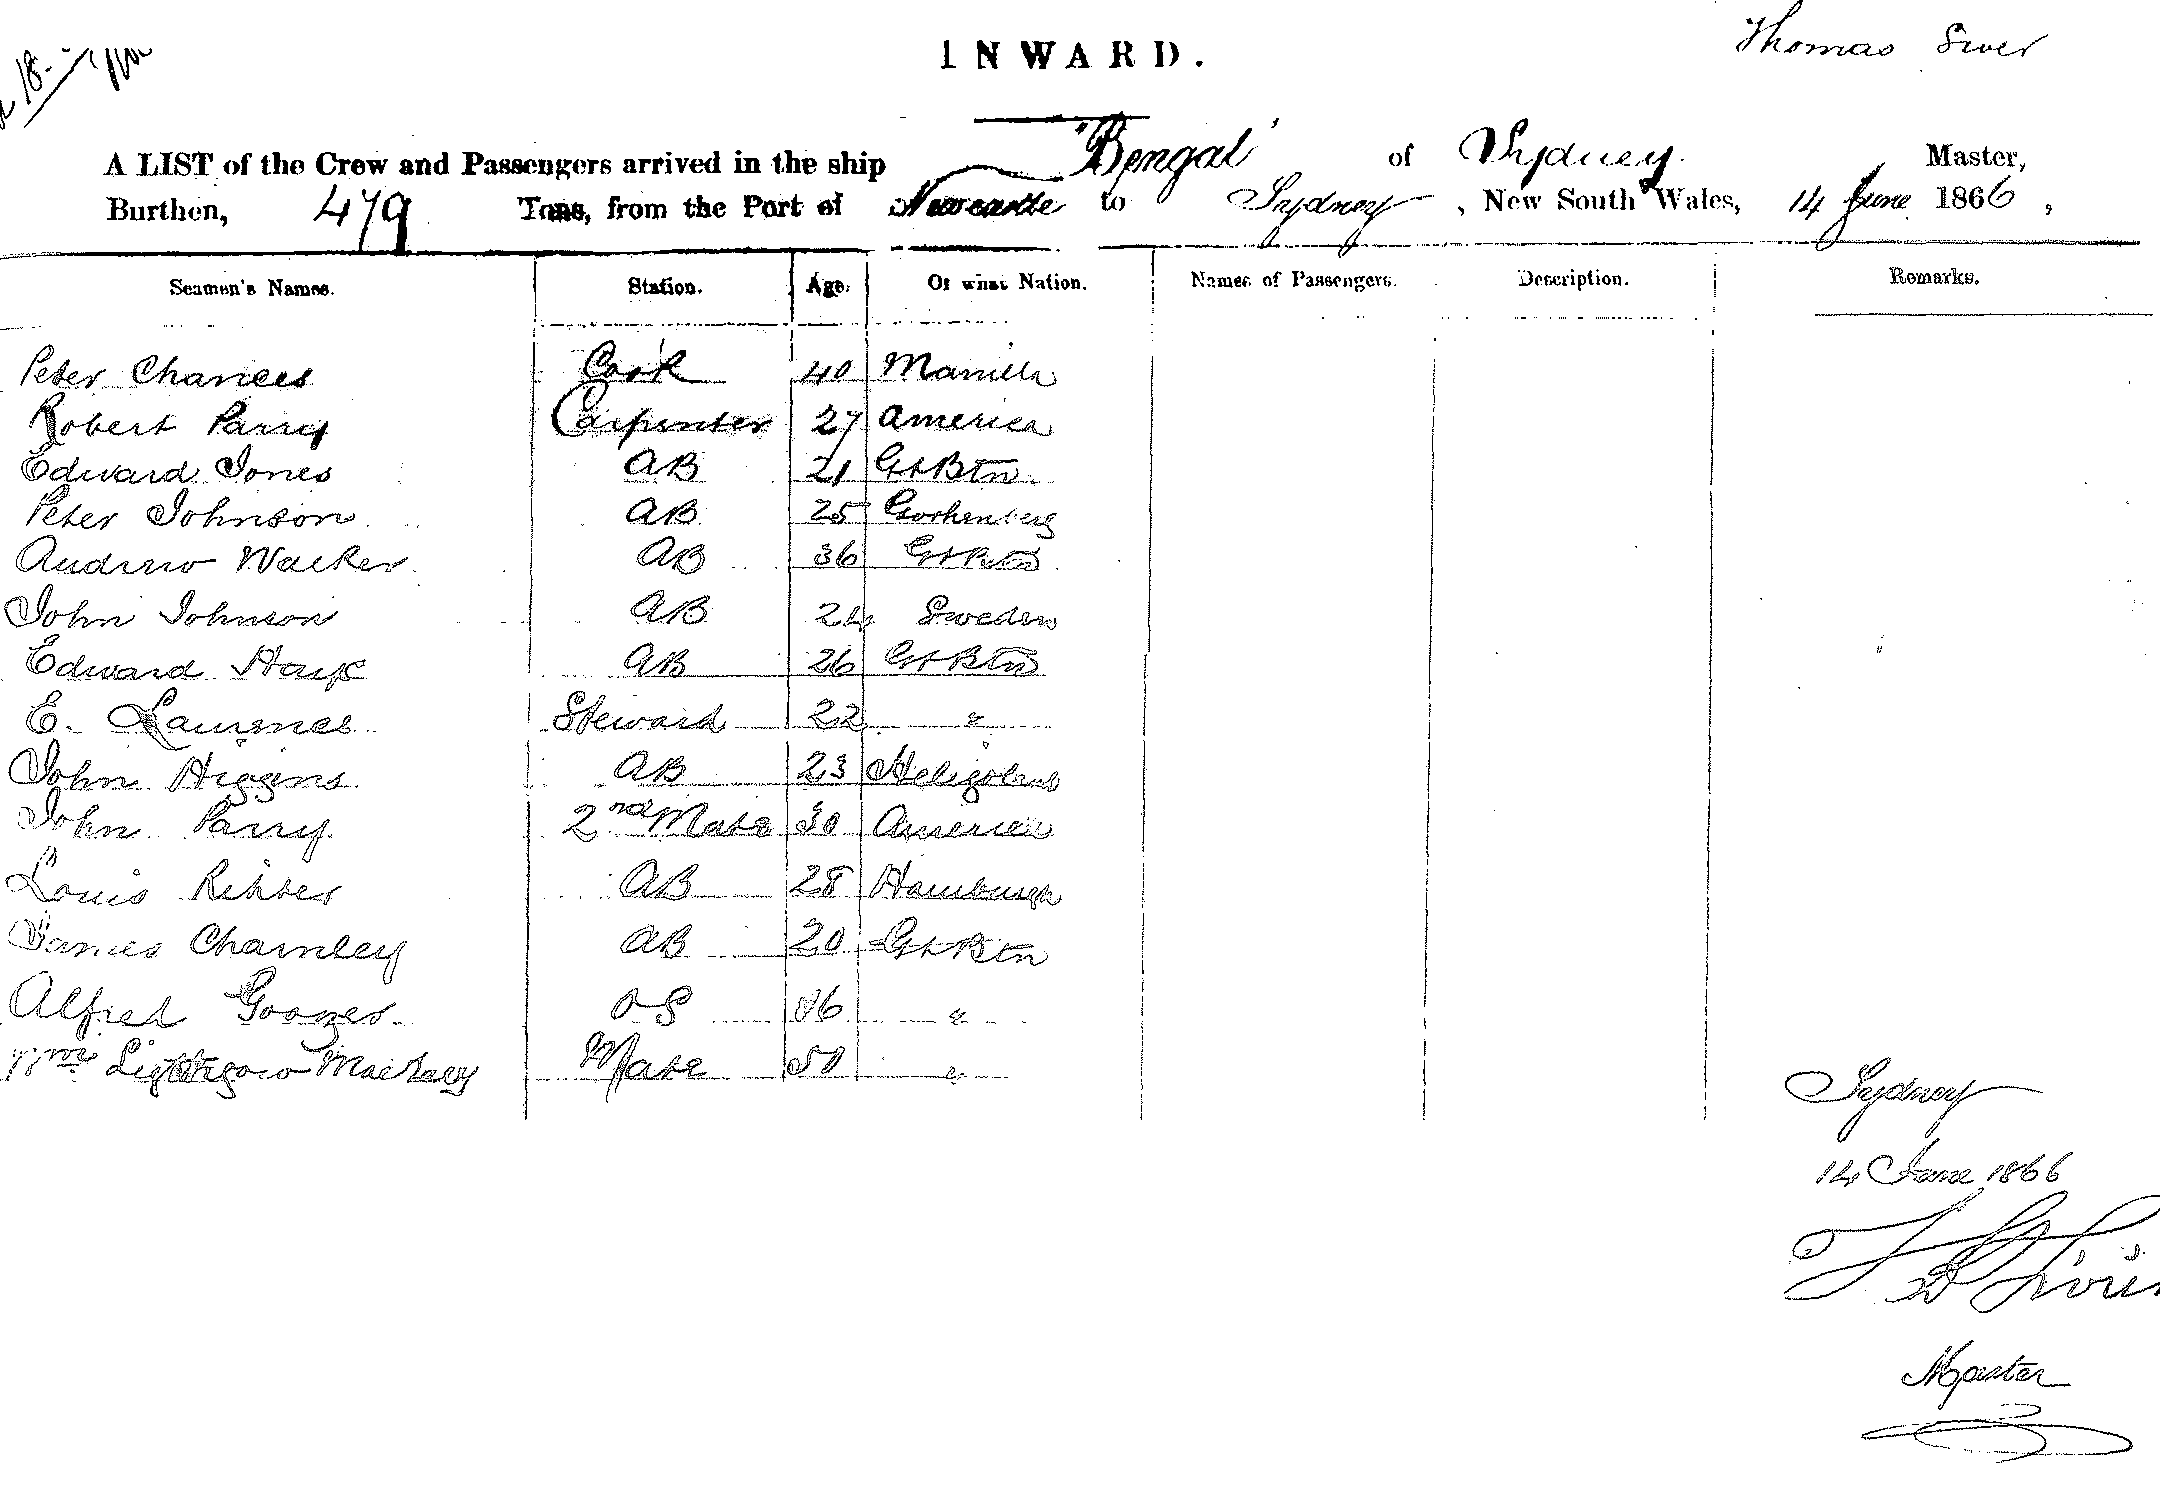 INWARD.
Thomas Siver
18
A LIST of the Crew and Passengers arrived in the ship "Bengal" of Sydney Master,
Burthen, 479 Tons, from the Port of Newcastle to Sydney, New South Wales, 14 June 1866,
Seamen's Names. Station. Age. Of what Nation. Names of Passengers. Description. Remarks.
Peter Chances Cook 40 Manilla
Robert Parry Carpenter 27 America
Edward Jones AB 21 Gt Btn
Peter Johnson AB 25 Gothenberg
Andrew Walker AB 36 Gt Btn
John Johnson AB 24 Sweden
Edward AB 26 Gt Btn
E. Laurence Steward 22 "
John Higgins AB 23 Heligoland
John Parry 2nd Mate 30 America
Louis Rihter AB 28 Hamburgh
James Charnley AB 20 Gt Btn
Alfred OS "
Wm Lightgow Mackay Mate 50 "
Sydney
14 June 1866
Master